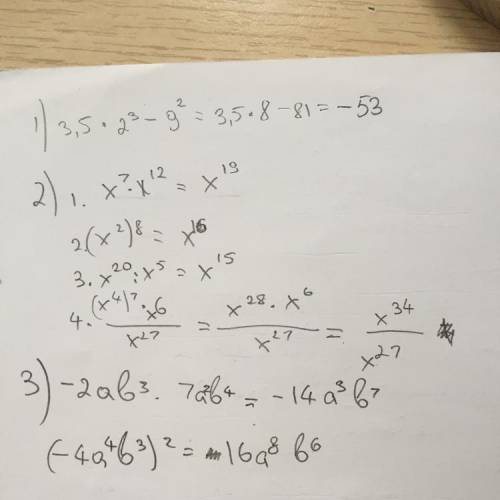 1) 3,5 · 2³ - 9² = 3,5 · 8 - 81 = -53
2) 1. x⁷ · x¹² = x¹⁹
2. (x²)⁸ = x¹⁶
3. x²⁰ : x⁵ = x¹⁵
4. (x⁴)⁷ · x6 / x²⁷ = x²⁸ · x⁶ / x²⁷ = x³⁴ / x²⁷
3) -2ab³ · 7a²b⁴ = -14a³b⁷
(-4a⁴b³)² = 16a⁸b⁶